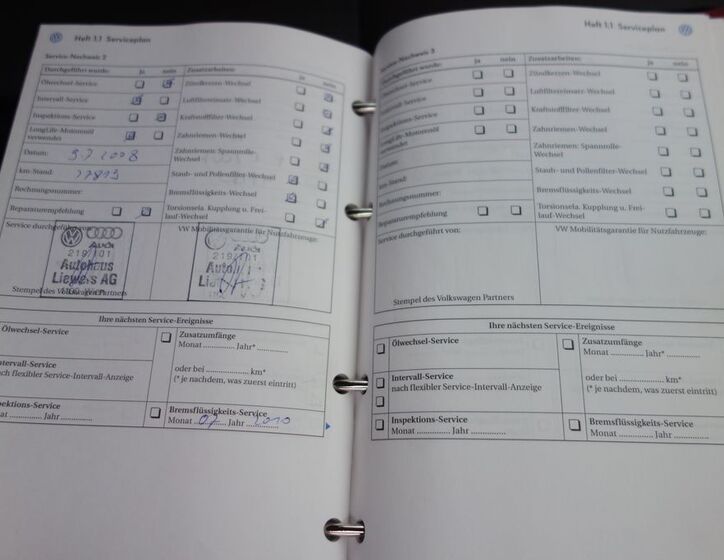 Heft 1.1 Serviceplan
Service-Nachweis 2
Durchgeführt wurde: ja nein Zusatzarbeiten: ja nein
Ölwechsel-Service Zündkerzen-Wechsel
Intervall-Service Luftfiltereinsatz-Wechsel
Inspektions-Service Kraftstofffilter-Wechsel
LongLife-Motorenöl verwendet Zahnriemen-Wechsel
Datum: 3.7.2008 Zahnriemen: Spannrolle-Wechsel
km-Stand: Staub- und Pollenfilter-Wechsel
Rechnungsnummer: Bremsflüssigkeits-Wechsel
Reparaturempfehlung Torsionsela. Kupplung u. Freilauf-Wechsel
Service durchgeführt von: VW Mobilitätsgarantie für Nutzfahrzeuge:
Audi
219/101
Autohaus
Liewers AG
Stempel des Volkswagen Partners
Ihre nächsten Service-Ereignisse
Ölwechsel-Service Zusatzumfänge
Monat ............. Jahr* .............
oder bei ............. km*
(* je nachdem, was zuerst eintritt)
ntervall-Service
nach flexibler Service-Intervall-Anzeige
pektions-Service Bremsflüssigkeits-Service
Monat ............. Jahr ............. Monat 07 Jahr 2010
Heft 1.1 Serviceplan
Service-Nachweis 3
Durchgeführt wurde: ja nein Zusatzarbeiten: ja nein
Ölwechsel-Service Zündkerzen-Wechsel
Intervall-Service Luftfiltereinsatz-Wechsel
Inspektions-Service Kraftstofffilter-Wechsel
LongLife-Motorenöl verwendet Zahnriemen-Wechsel
Datum: Zahnriemen: Spannrolle-Wechsel
km-Stand: Staub- und Pollenfilter-Wechsel
Rechnungsnummer: Bremsflüssigkeits-Wechsel
Reparaturempfehlung Torsionsela. Kupplung u. Freilauf-Wechsel
Service durchgeführt von: VW Mobilitätsgarantie für Nutzfahrzeuge:
Stempel des Volkswagen Partners
Ihre nächsten Service-Ereignisse
Ölwechsel-Service Zusatzumfänge
Monat ............. Jahr* .............
Intervall-Service oder bei ............. km*
nach flexibler Service-Intervall-Anzeige (* je nachdem, was zuerst eintritt)
Inspektions-Service Bremsflüssigkeits-Service
Monat ............. Jahr ............. Monat ............. Jahr .............